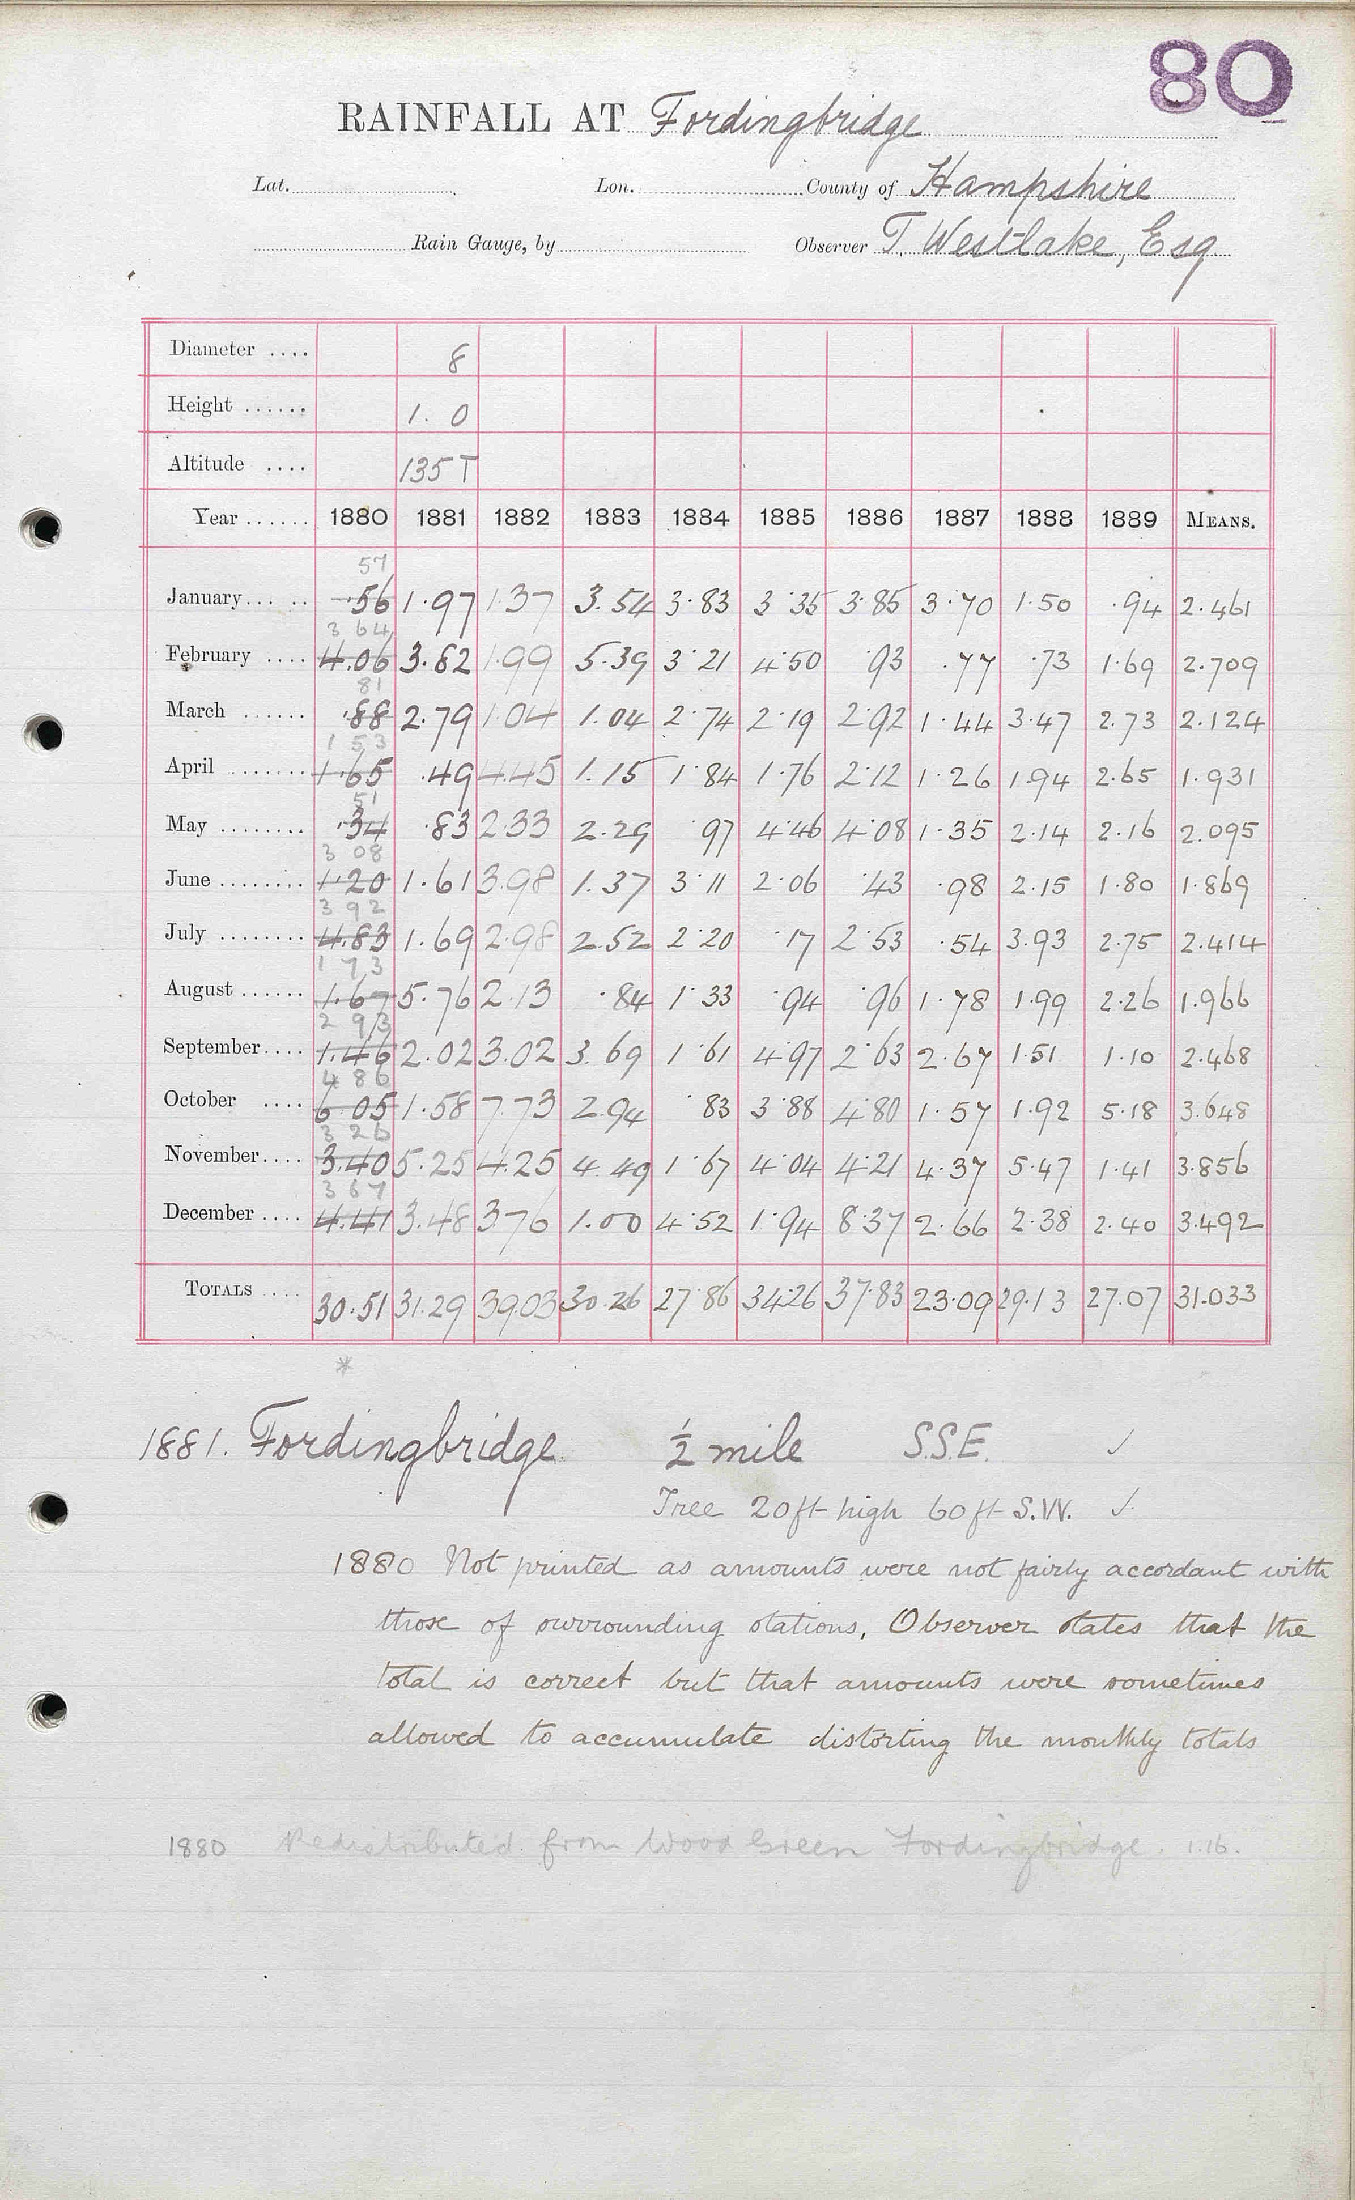 80
RAINFALL AT Fordingbridge
Lat. Lon. County of Hampshire
Rain Gauge, by Observer T. Westlake, Esq
Diameter .... 8
Height ...... 1. 0
Altitude .... 135 T
Year ...... 1880 1881 1882 1883 1884 1885 1886 1887 1888 1889 MEANS.
57
January... .. .56 1.97 1.37 3.54 3.83 3.35 3.85 3.70 1.50 .94 2.461
3 64
February .... 4.06 3.82 1.99 5.39 3.21 4.50 .93 .77 .73 1.69 2.709
81
March ...... .88 2.79 1.04 1.04 2.74 2.19 2.92 1.44 3.47 2.73 2.124
1 53
April ....... 1.65 .49 4.45 1.15 1.84 1.76 2.12 1.26 1.94 2.65 1.931
51
May ........ .34 .83 2.33 2.29 .97 4.46 4.08 1.35 2.14 2.16 2.095
3 08
June ........ 1.20 1.61 3.98 1.37 3.11 2.06 .43 .98 2.15 1.80 1.869
3 92
July ........ 4.83 1.69 2.98 2.52 2.20 .17 2.53 .54 3.93 2.75 2.414
1 73
August ...... 1.67 5.76 2.13 .84 1.33 .94 .96 1.78 1.99 2.26 1.966
2 93
September.... 1.46 2.02 3.02 3.69 1.61 4.97 2.63 2.67 1.51 1.10 2.468
4 86
October .... 6.05 1.58 7.73 2.94 .83 3.88 4.80 1.57 1.92 5.18 3.648
3 26
November.... 3.40 5.25 4.25 4.49 1.67 4.04 4.21 4.37 5.47 1.41 3.856
3 67
December .... 4.41 3.48 3.76 1.00 4.52 1.94 8.37 2.66 2.38 2.40 3.492
TOTALS .... 30.51 31.29 39.03 30.26 27.86 34.26 37.83 23.09 29.13 27.07 31.033
*
1881. Fordingbridge ½ mile S.S.E. ✓
Tree 20ft high 60ft S.W. ✓
1880 Not printed as amounts were not fairly accordant with
those of surrounding stations. Observer states that the
total is correct but that amounts were sometimes
allowed to accumulate distorting the monthly totals
1880 Redistributed from Wood Green Fordingbridge. 1.16.